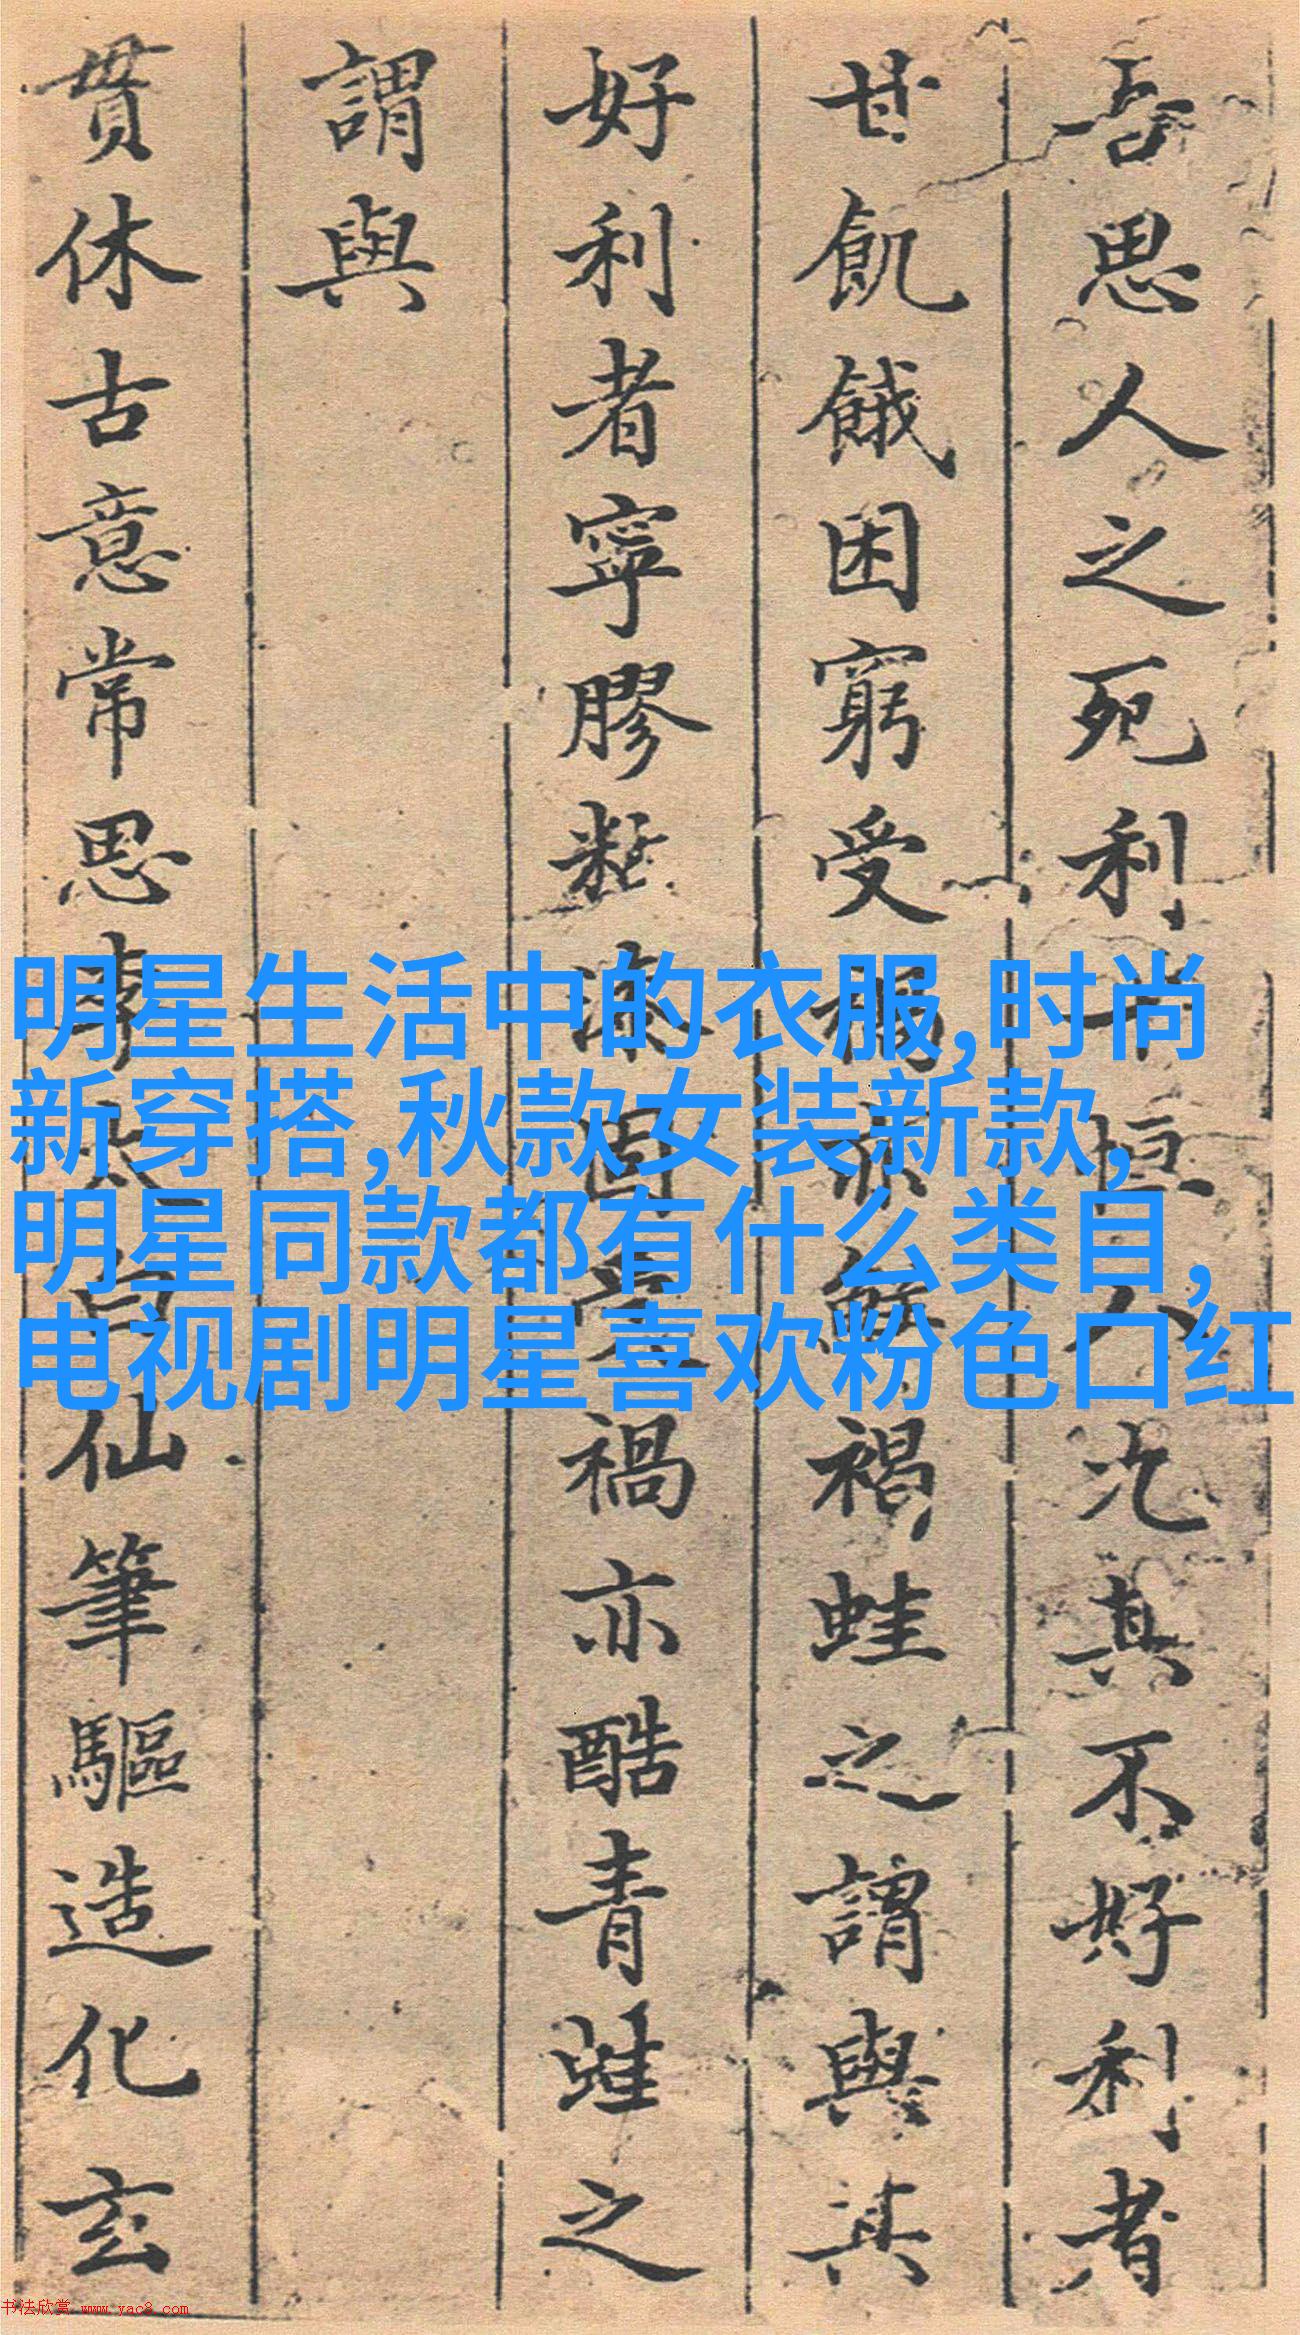 吾思人之死利十恒八九其不好利者
甘飢餓困窮受禍亦鮮褐蛙之謂與其
好利者寧膠黏漆固其禍亦酷青蛙之
謂與
貫休古意常思李太白仙筆驅造化玄
明星生活中的衣服,时尚
新穿搭,秋款女装新款,
明星同款都有什么类目,
电视剧明星喜欢粉色口红
书法欣赏 www.yac8.com